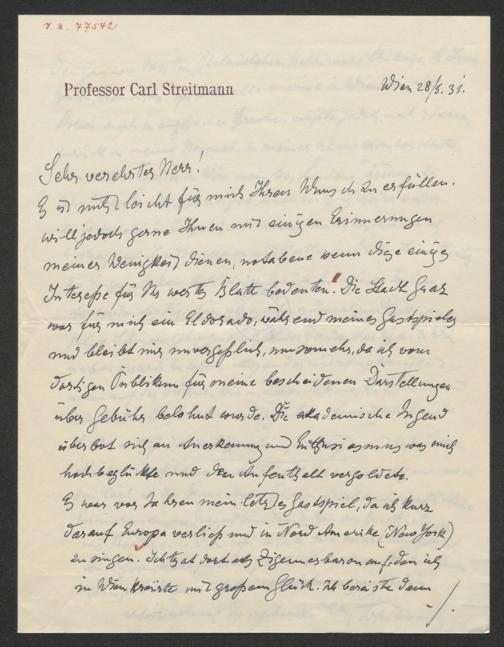 V. N. 77542
Professor Carl Streitmann
Wien 28/5. 31.
Sehr verehrter Herr!
Es ist nicht leicht für mich Ihren Wunsch zu erfüllen.
will jedoch gerne Ihnen mit einigen Erinnerungen
meiner Wenigkeit dienen, notabene wenn diese einiges
Interesse für Ihr wertes Blatt bedeuten. Die Stadt Graz
war für mich ein Eldorado, während meines Gastspieles
und bleibt mir unvergeßlich, umsomehr, da ich vom
dortigen Publikum für meine bescheidenen Darstellungen
über Gebühr belohnt wurde. Die akademische Jugend
überbot sich an Anerkennung und Enthusiasmus was mich
hochbeglückte und den Aufenthalt vergoldete.
Es war vor Jahren mein letztes Gastspiel, da ich kurz
darauf Europa verließ und in Nord Amerika (New York)
zu singen. Ich trat dort als Zigeunerbaron auf, den ich
in Wien kreirte mit großem Glück. Ich bereiste dann